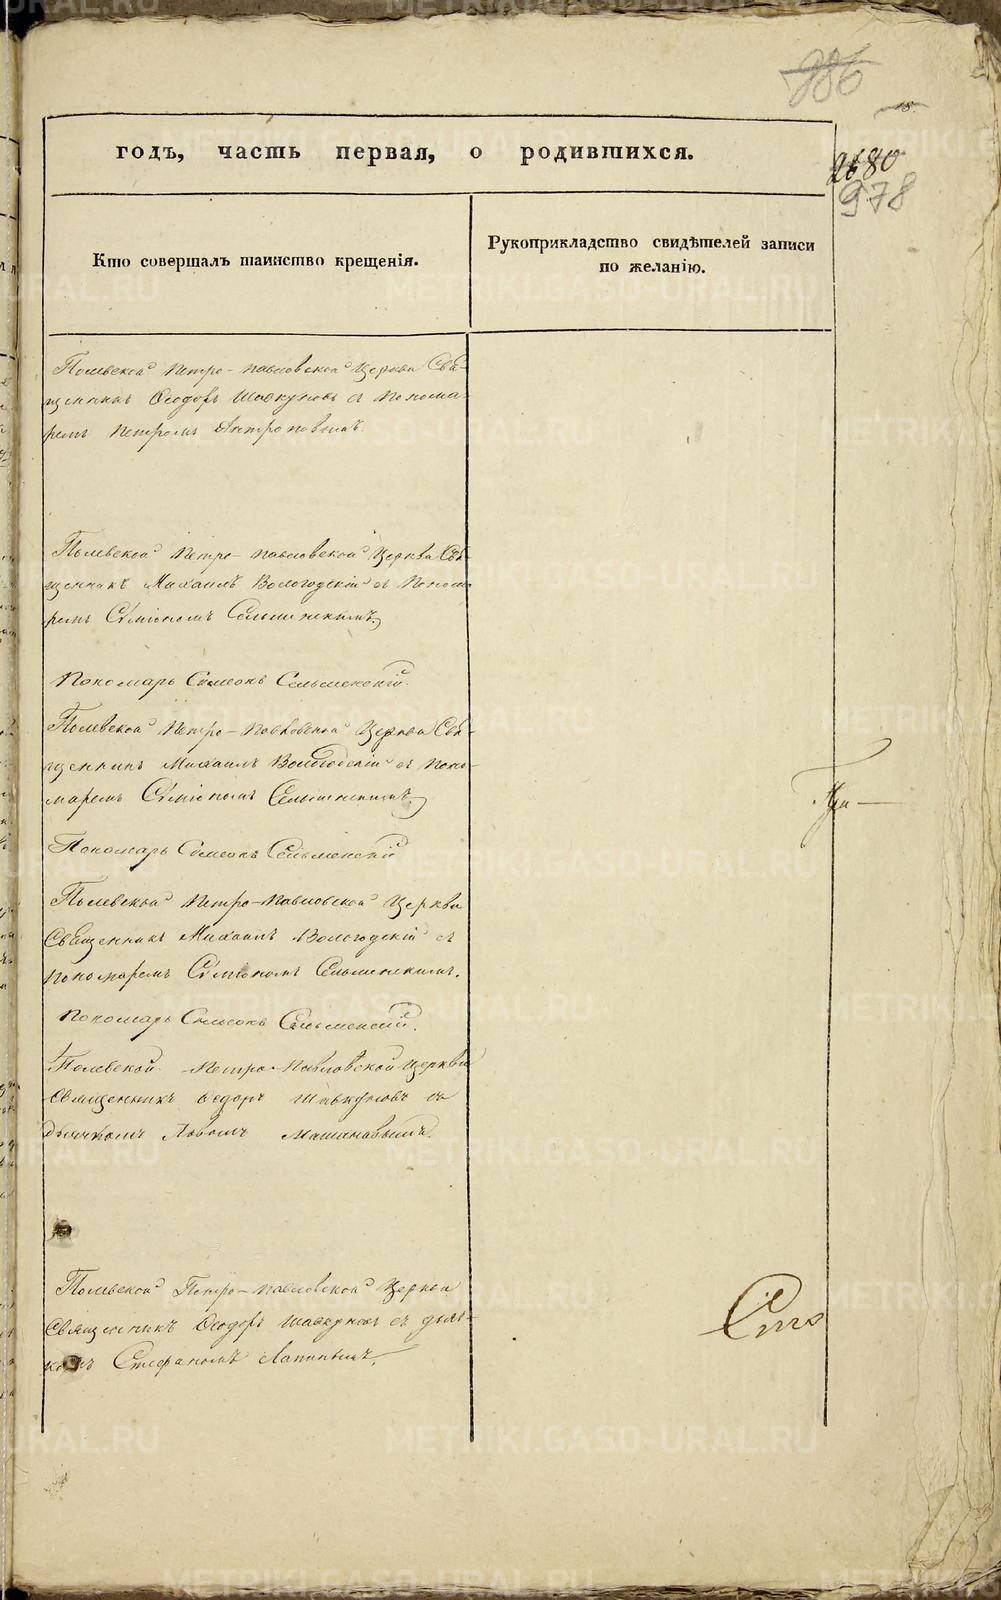 986
2680
978
годъ, часть первая, о родившихся.
Кто совершалъ таинство крещенія.
Рукоприкладство свидѣтелей записи
по желанію.
Полевской Петро-Павловской Церкви Свя-
щенникъ Ѳеодоръ Шавкуновъ съ Понома-
ремъ Петромъ
Полевской Петро-Павловской Церкви Свя-
щенникъ Михаилъ Вологодскій съ Понома-
ремъ Сѵмеономъ Сельменскимъ
Пономарь Симеонъ Сельменскій.
Полевской Петро-Павловской Церкви Свя-
щенникъ Михаилъ Вологодскій съ Поно-
маремъ Сѵмеономъ Сельменскимъ
Пономарь Симеонъ Сельменскій
Полевской Петро-Павловской Церкви
Священникъ Михаилъ Вологодскій съ
Пономаремъ Сѵмеономъ Сельменскимъ.
Пономарь Симеонъ Сельменскій.
Полевской Петро-Павловской Церкви
Священникъ Ѳедоръ Шавкуновъ съ
дьячкомъ Львомъ
Полевской Петро-Павловской Церкви
Священникъ Ѳеодоръ Шавкуновъ съ дьяч-
комъ Стефаномъ Лапинымъ.
METRIKI.GASO-URAL.RU